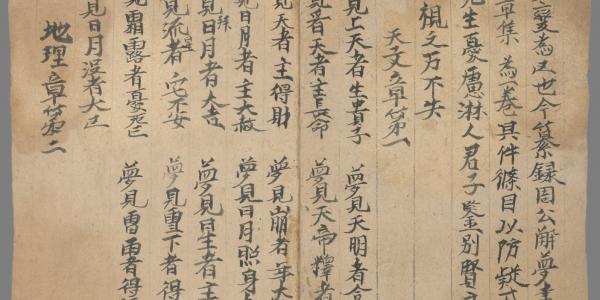 変為凶也今纂録周公解夢書
章集為一卷具件條目以防疑
先生憂慮淋人君子鑒別賢
視之万不失
天文章第一
見上天者生貴子 夢見天明者合
見看天者主長命 夢見天帝釋者
見天者主得財 夢見崩者年大
見日月者主大赦 夢見日月照身
見拜日月者大吉 夢見日主者主
見流星者宅不安 夢見雪下者得
見霜露者憂死亡 夢見雷雨者得
見日月沒者大凶
地理章第二